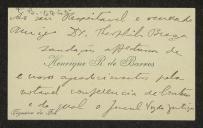 Ao seu Respeitavel e venerado
Amigo Dr. Theophilo Braga
saudação affectuosa de
Henrique R. de Barros
e novos agradecimentos pela
notavel conferencia de
e do qual o Jornal
Figueira da Foz